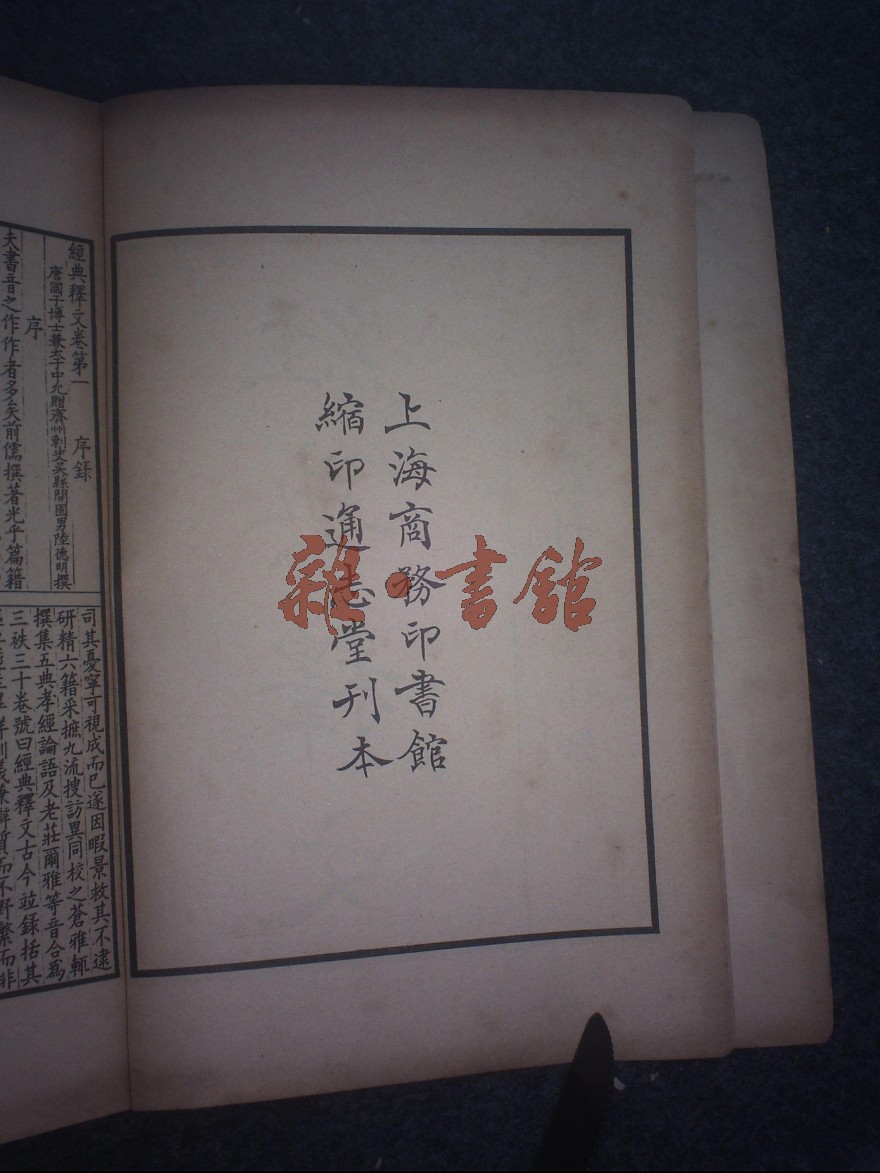 上海商務印書館
縮印通志堂刊本
雜·書館
經典釋文卷第一 序錄
唐國子博士兼太子中允贈齊州刺史吳縣開國男陸德明撰
序
夫書音之作作者多矣前儒撰著光乎篇籍
司其憂寧可視成而已遂因暇景救其不逮
研精六籍采摭九流搜訪異同校之蒼雅輒
撰集五典孝經論語及老莊爾雅等音合為
三袟三十卷號曰經典釋文古今竝錄括其